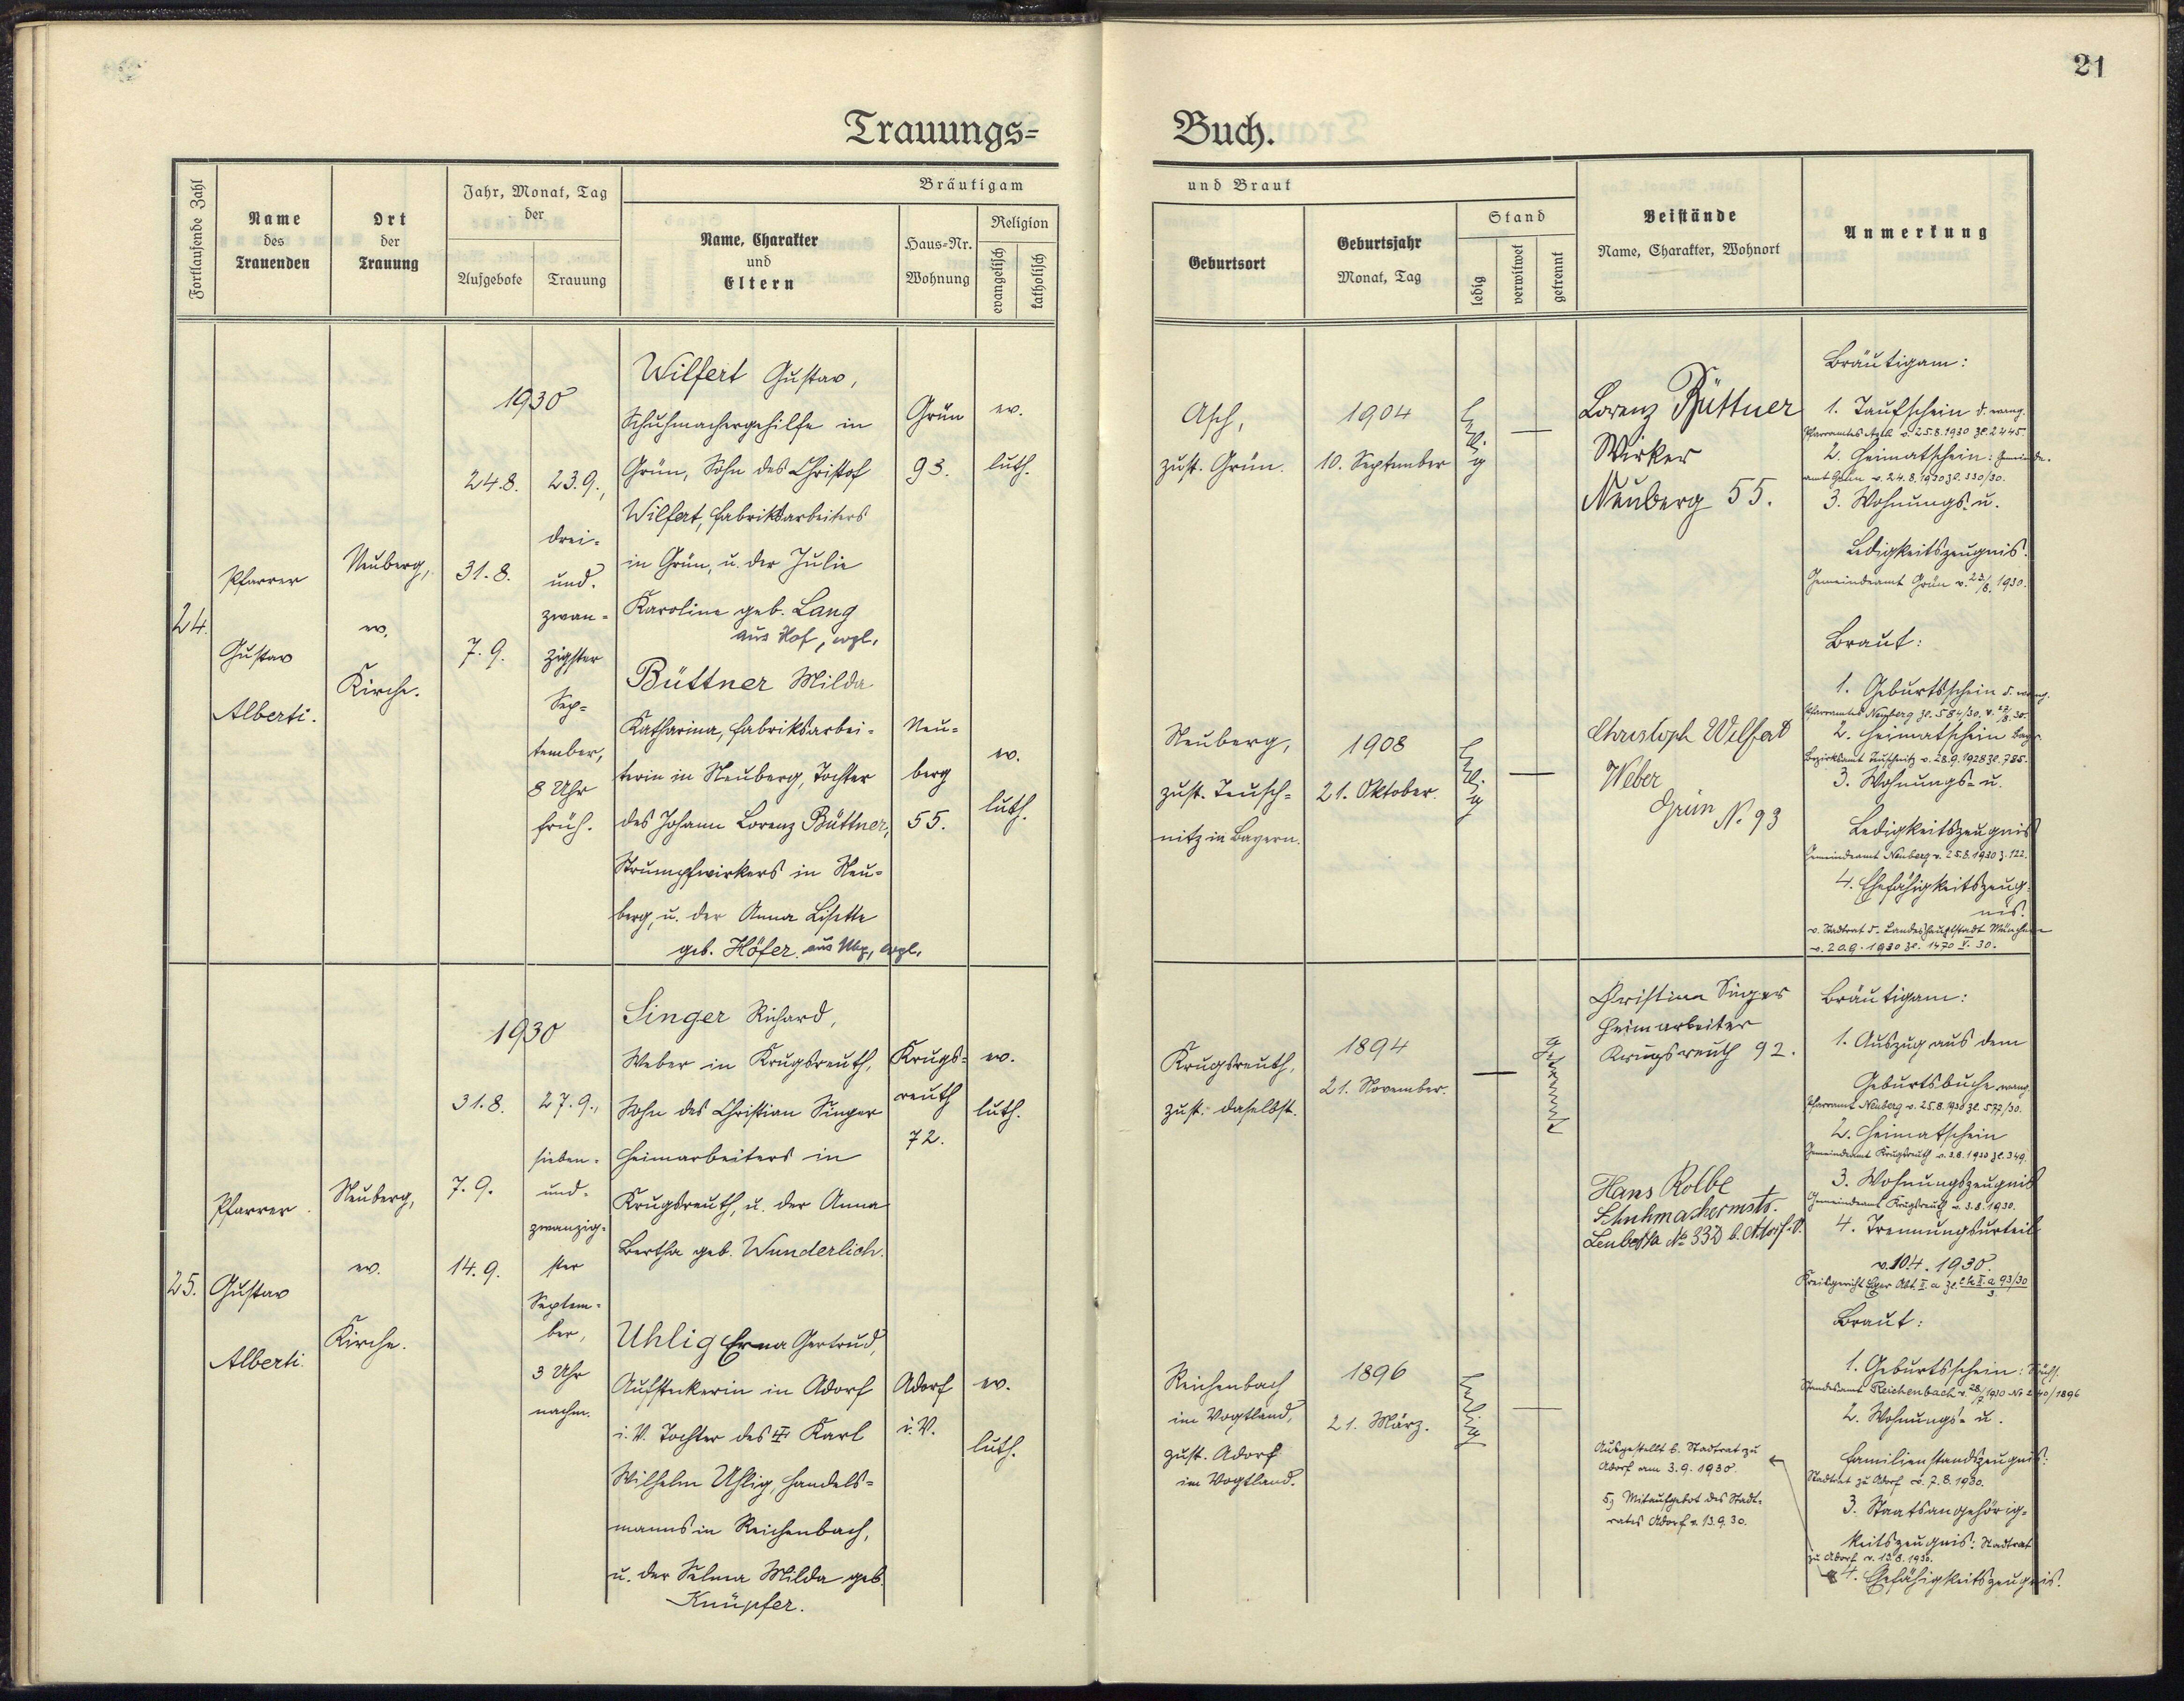 21
Trauungs-
Buch.
Fortlaufende Zahl
Name
des
Trauenden
Ort
der
Trauung
Jahr, Monat, Tag
der
Aufgebote
Trauung
Bräutigam
Name, Charakter
und
Eltern
Haus-Nr.
Wohnung
Religion
evangelisch
katholisch
und Braut
Geburtsort
Geburtsjahr
Monat, Tag
Stand
ledig
verwitwet
getrennt
Beistände
Name, Charakter, Wohnort
Anmerkung
24.
Pfarrer
Gustav
Alberti.
Neuberg,
ev.
Kirche.
1930
24.8.
31.8.
7.9.
23.9.,
drei-
und-
zwan-
zigster
Sep-
tember,
8 Uhr
früh.
Wilfert Gustav,
Schuhmachergehilfe in
Grün, Sohn des Christof
Wilfert, Fabriksarbeiters
in Grün, u. der Julie
Karoline geb. Lang
aus Hof, evgl.
Grün
93.
ev.
luth.
Büttner Milda
Katharina, Fabriksarbei-
terin in Neuberg, Tochter
des Johann Lorenz Büttner,
Strumpfwirkers in Neu-
berg, u. der Anna Lisette
geb. Höfer. aus Nbg, evgl.
Neu-
berg
55.
ev.
luth.
Asch,
zust. Grün.
1904
10. September
ledig
Lorenz Büttner
Wirker
Neuberg 55.
Bräutigam:
1. Taufschein d. evang.
Pfarramtes Asch v. 25.8.1930 Zl. 2445.
2. Heimatschein: Gemeinde-
amt Grün v. 24.8.1930 Zl. 330/30.
3. Wohnungs- u.
Ledigkeitszeugnis.
Gemeindeamt Grün v. 23/8. 1930.
Neuberg,
zust. Teusch-
nitz in Bayern.
1908
21. Oktober.
ledig
Christoph Wilfert
Weber
Grün No. 93
Braut:
1. Geburtsschein d. evang.
Pfarramtes Neuberg Zl. 584/30. v. 27/8. 30.
2. Heimatschein bayr.
Bezirksamt Teuschnitz v. 28.9.1928 Zl. 785.
3. Wohnungs- u.
Ledigkeitszeugnis
Gemeindeamt Neuberg v. 25.8.1930 Z. 122.
4. Ehefähigkeitszeug-
nis.
v. Stadtrat d. Landeshauptstadt München
v. 20.9.1930 Zl. 1470 V. 30.
25.
Pfarrer
Gustav
Alberti.
Neuberg,
ev.
Kirche.
1930
31.8.
7.9.
14.9.
27.9.,
sieben-
und-
zwanzig-
ster
Septem-
ber,
3 Uhr
nachm.
Singer Richard,
Weber in Krugsreuth,
Sohn des Christian Singer
Heimarbeiters in
Krugsreuth, u. der Anna
Bertha geb. Wunderlich.
Krugs-
reuth
72.
ev.
luth.
Uhlig Erna Gertrud,
Aufsteckerin in Adorf
i. V. Tochter des Karl
Wilhelm Uhlig, Handels-
manns in Reichenbach,
u. der Selma Milda geb.
Knüpfer.
Adorf
i. V.
ev.
luth.
Krugsreuth,
zust. daselbst.
1894
21. November.
getrennt
Christian Singer
Heimarbeiter
Krugsreuth 92.
Bräutigam:
1. Auszug aus dem
Geburtsbuche evang.
Pfarramt Neuberg v. 25.8.1930 Zl. 577/30.
2. Heimatschein
Gemeindeamt Krugsreuth v. 3.8.1930 Zl. 349.
3. Wohnungszeugnis
Gemeindeamt Krugsreuth v. 3.8.1930.
4. Trennungsurteil
v. 10.4.1930.
Kreisgericht Eger Abt. II. a Zl. Ck II. a 93/30
3
Reichenbach
im Vogtland,
zust. Adorf
im Vogtland.
1896
21. März.
ledig
Hans Kolbe
Schuhmachermstr.
No 33D b. Adorf. V.
Ausgestellt b. Stadtrat zu
Adorf am 3.9.1930.
5) Mitaufgebot des Stadt-
rates Adorf v. 13.9.30.
Braut:
1. Geburtsschein: Sächs.
Standesamt Reichenbach 1930 No 240/1896
2. Wohnungs- u.
Familienstandszeugnis:
Stadtrat zu Adorf v. 7.8.1930.
3. Staatsangehörig-
keitszeugnis: Stadtrat
zu Adorf v. 13.8.1930.
4. Ehefähigkeitszeugnis.